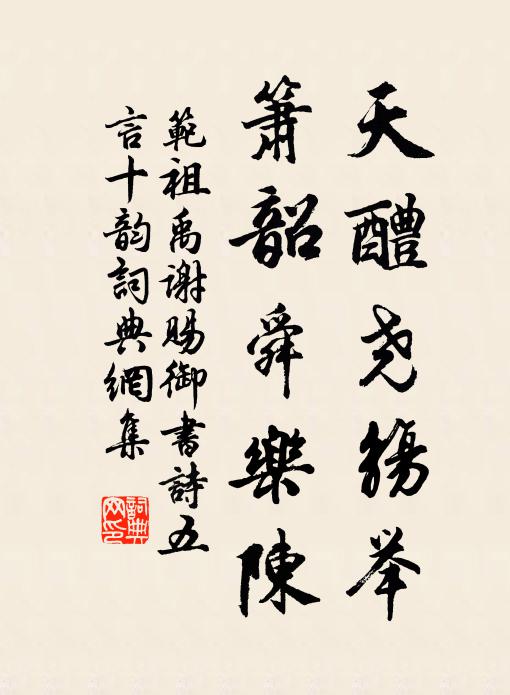 天醴尧觴举
簫韶舜樂陳
範祖禹谢賜御書詩五
言十韵詞典網集
詞典
网印